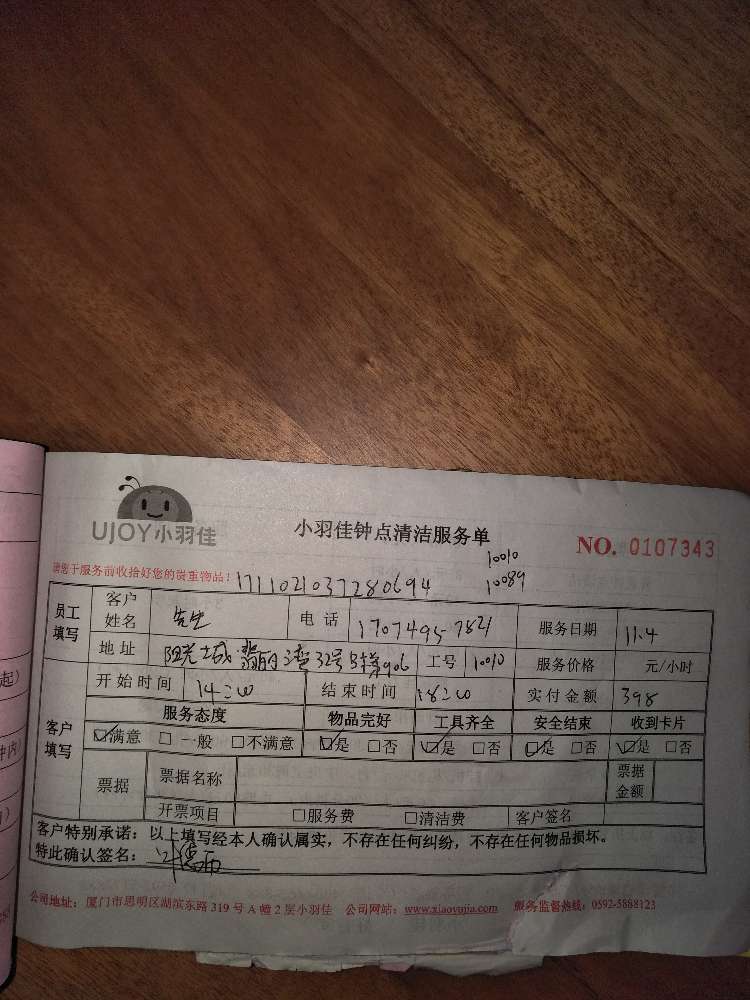 UJOY小羽佳
小羽佳钟点清洁服务单
NO. 0107343
10010
请您于服务前收拾好您的贵重物品! 17111021037280694 10089
员工填写 客户姓名 先生 电话 1707495 7821 服务日期 11.4
地址 阳光城翡丽湾32号 906 工号 10010 服务价格 元/小时
客户填写 开始时间 14:00 结束时间 18:00 实付金额 398
服务态度 物品完好 工具齐全 安全结束 收到卡片
☑满意 □一般 □不满意 ☑是 □否 ☑是 □否 ☑是 □否 ☑是 □否
票据 票据名称 票据金额
开票项目 □服务费 □清洁费 客户签名
客户特别承诺:以上填写经本人确认属实,不存在任何纠纷,不存在任何物品损坏。
特此确认签名:
公司地址:厦门市思明区湖滨东路 319 号 A 幢 2 层小羽佳 公司网站:www.xiaoyujia.com 服务监督热线:0592-5888123